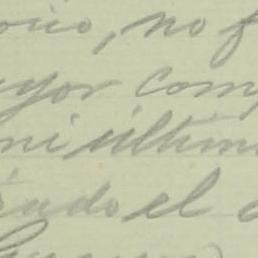 orio, no f
yor com
mi últim
ando el